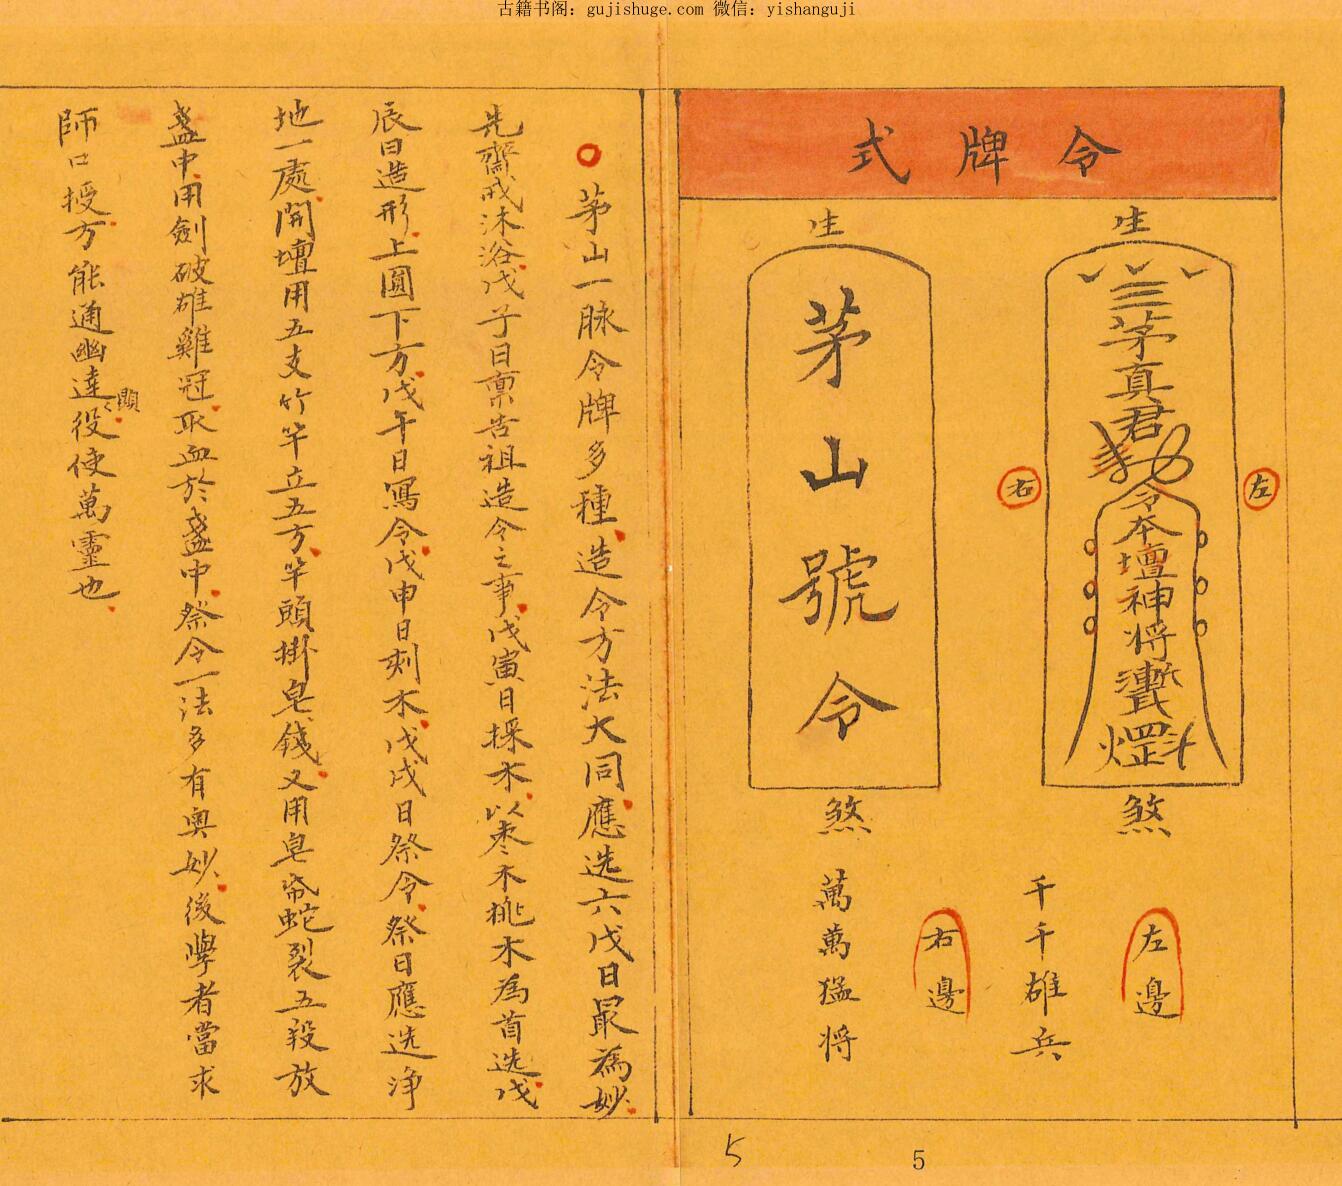 古籍书阁：gujishuge.com 微信：yishanguji
令牌式
生
三茅真君
令本壇神将
煞
左
右
左邊
千千雄兵
生
茅山號令
煞
右邊
萬萬猛将
茅山一脉令牌多種造令方法大同應选六戊日最為妙
先齋戒沐浴戊子日禀告祖造令之事戊寅日採木以枣木桃木為首选戊
辰日造形上圓下方戊午日寫令戊申日刺木戊戌日祭令祭日應选净
地一處開壇用五支竹竿立五方竿頭掛皂錢又用皂帋蛇裂五段放
盏中用劍破雄雞冠取血於盏中祭令一法多有奥妙後學者當求
師口授方能通幽達顯役使萬靈也
5
5